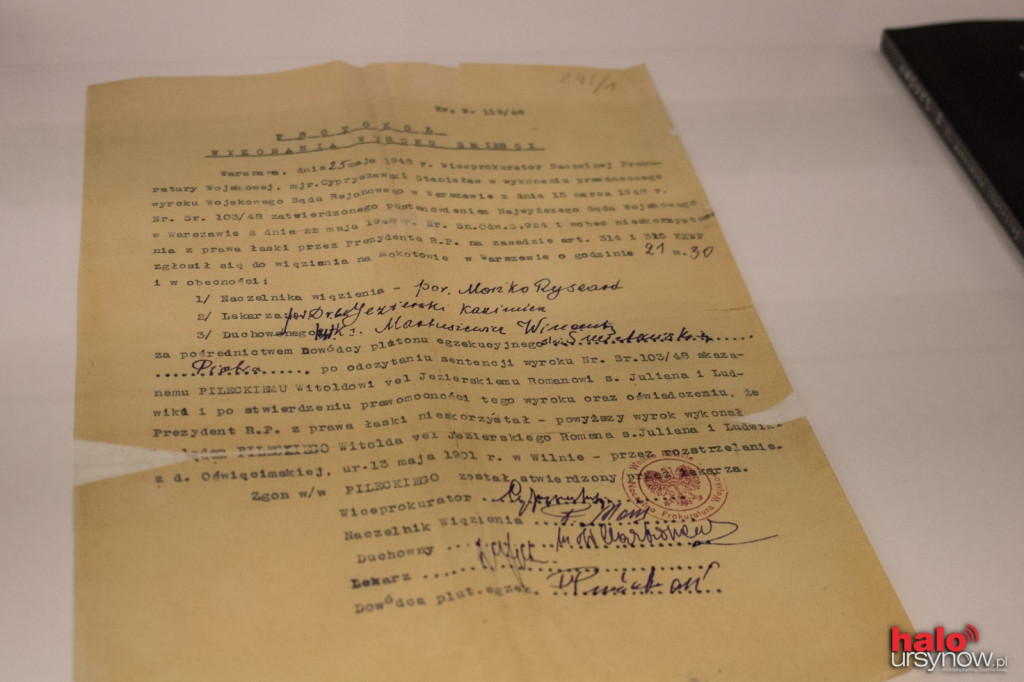 241/1
Nr. W. 118/48
P R O T O K Ó Ł
WYKONANIA WYROKU ŚMIERCI
Warszawa, dnia 25 maja 1948 r. Wiceprokurator Naczelnej Proku-
ratury Wojskowej, mjr. Cypryszewski Stanisław w wykonaniu prawomocnego
wyroku Wojskowego Sądu Rejonowego w Warszawie z dnia 15 marca 1948 r.
Nr. Sr. 103/48 zatwierdzonego postanowieniem Najwyższego Sądu Wojskowego
w Warszawie z dnia 22 maja 1948 r. Nr. Sn.Odw.S.924 i wobec nieskorzysta-
nia z prawa łaski przez Prezydenta R.P. na zasadzie art. 314 i 315 KKWP
zgłosił się do więzienia na Mokotowie w Warszawie o godzinie 21 m. 30
i w obecności:
1/ Naczelnika więzienia - por. Mońko Ryszard
2/ Lekarza por Dr. Jezierski Kazimierz
3/ Duchownego ks. Martusiewicz Wincenty
za pośrednictwem Dowódcy plutonu egzekucyjnego
Piotra ..... po odczytaniu sentencji wyroku Nr. Sr.103/48 skaza-
nemu PILECKIEMU Witoldowi vel Jezierskiemu Romanowi s. Juliana i Lud-
wiki i po stwierdzeniu prawomocności tego wyroku oraz oświadczeniu, że
Prezydent R.P. z prawa łaski nieskorzystał - powyższy wyrok wykonał
PILECKIEGO Witolda vel Jezierskiego Romana s.Juliana i Ludwiki
z d. Oświęcimskiej, ur.13 maja 1901 r. w Wilnie - przez rozstrzelanie.
Zgon w/w PILECKIEGO został stwierdzony przez lekarza.
Wiceprokurator
Naczelnik Więzienia
Duchowny
Lekarz
Dowódca plut.egzek.
Naczelna Prokuratura Wojskowa
halo
ursynow.pl